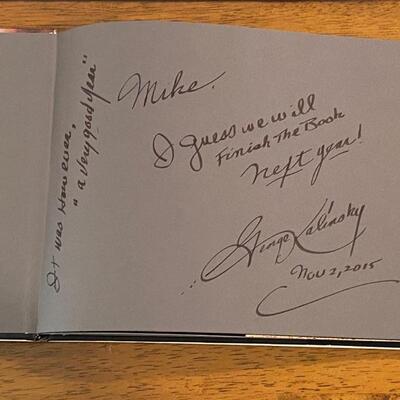 Mike.
I guess we will
Finish The Book
next year!
George Kalinsky
Nov 2, 2015
It was However,
"a very good year"